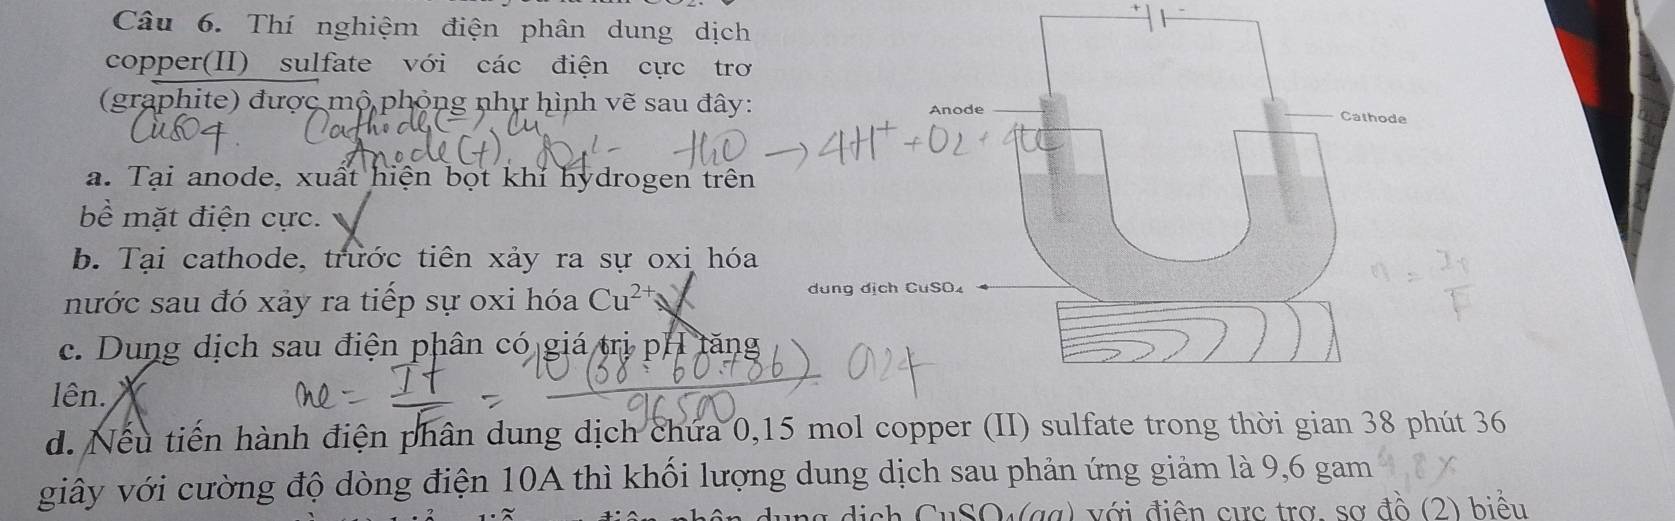 Câu 6. Thí nghiệm điện phân dung dịch
copper(II) sulfate với các điện cực trơ
(graphite) được mô phỏng như hình vẽ sau đây:
CuSO4. Cathode(-) Cu²⁺
Anode(+). SO4²⁻ H2O → 4H⁺ + O2 + 4e
a. Tại anode, xuất hiện bọt khí hydrogen trên
bề mặt điện cực.
b. Tại cathode, trước tiên xảy ra sự oxi hóa
nước sau đó xảy ra tiếp sự oxi hóa Cu²⁺.
c. Dung dịch sau điện phân có giá trị pH tăng
lên.
ne = It/F = 10(38.60+36)/96500 = 0,24
d. Nếu tiến hành điện phân dung dịch chứa 0,15 mol copper (II) sulfate trong thời gian 38 phút 36
giây với cường độ dòng điện 10A thì khối lượng dung dịch sau phản ứng giảm là 9,6 gam
dung dịch CuSO₄(aq) với điện cực trơ, sơ đồ (2) biểu
+ -
Anode
Cathode
dung dịch CuSO₄
n = It/F